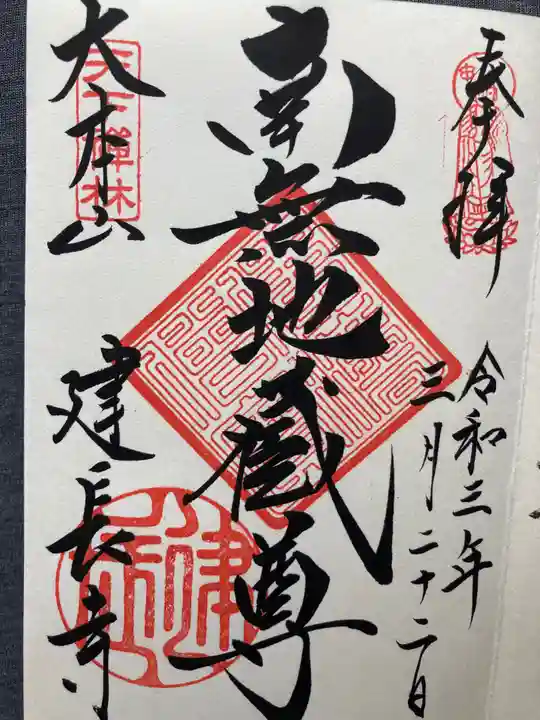 奉拝
令和三年
三月二十二日
南無地蔵尊
大本山
建長寺
天下禅林
建長